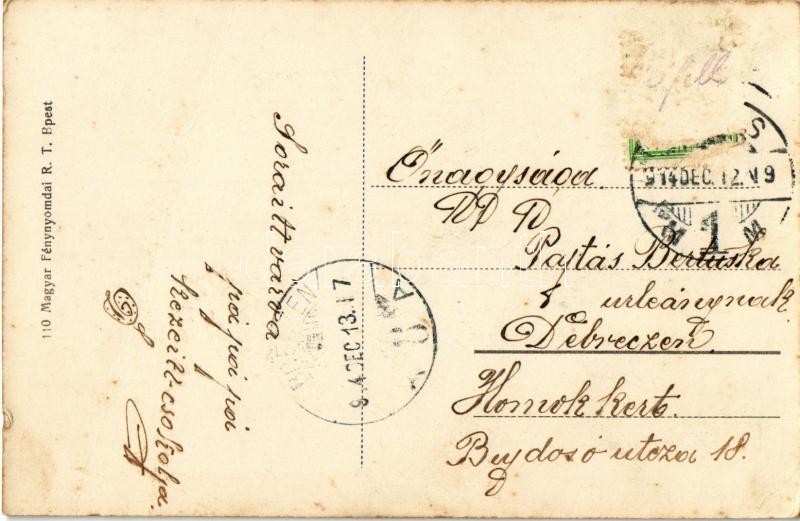 110 Magyar Fénynyomdai R. T. Bpest
Sorait várva
pá pá pá
Kezeit csókolja
Őnagysága
Pajtás Bertuska
urleánynak
Debreczen
Homok kert.
Bujdosó utcza 18.
914 DEC. 12. N 9
1
DEC 13. 17